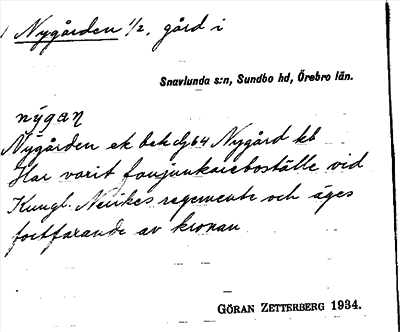 Nygården 1/2, gård i
Snavlunda s:n, Sundbo hd, Örebro län.
nýgan
Nygården ek bek dg64 Nygård kb
Har varit fanjunkareboställe vid
Kungl. Nerikes regemente och äges
fortfarande av kronan
GÖRAN ZETTERBERG 1934.